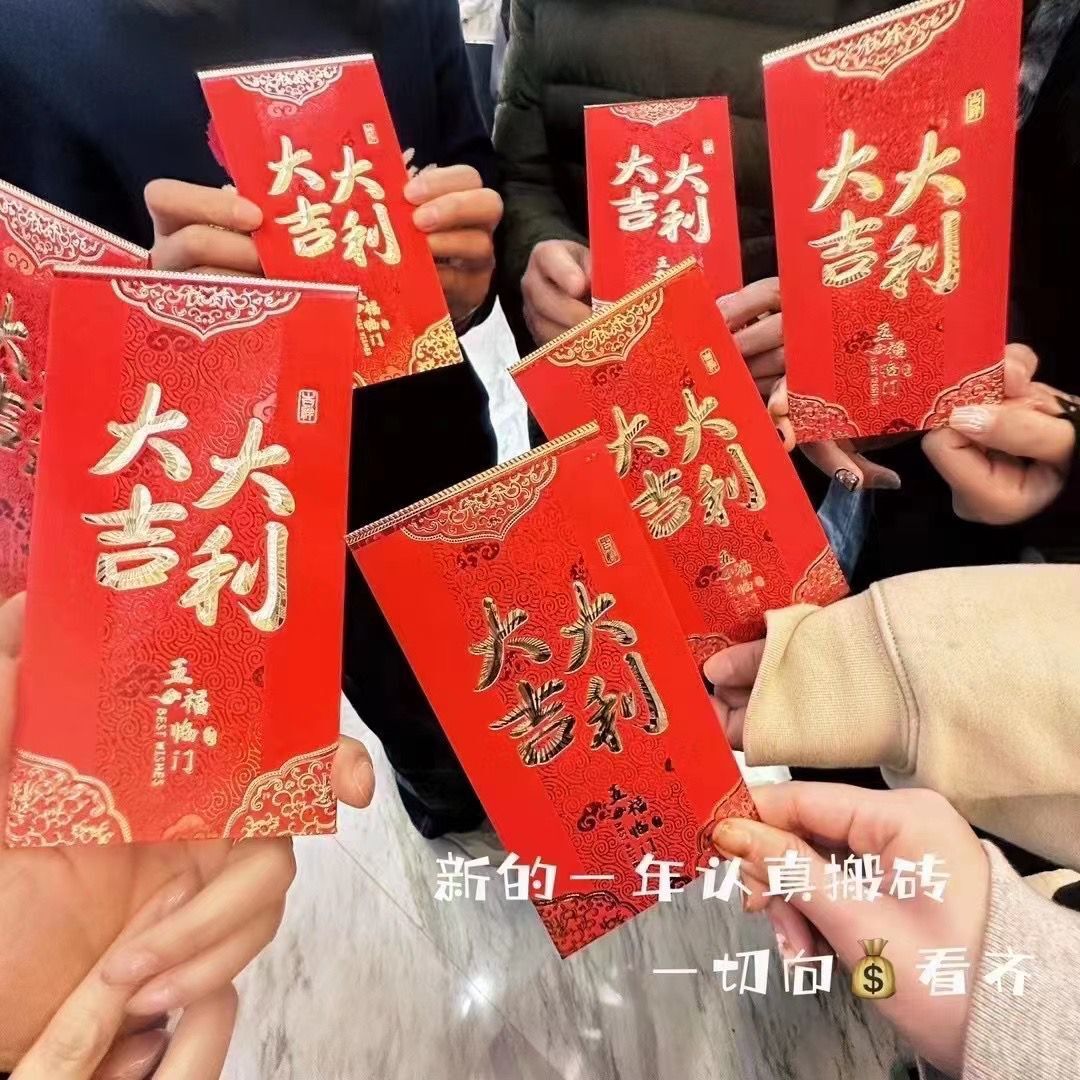 大吉大利
五福临门
大吉大利
五福
大吉大利
五福临门
BEST WISHES
吉祥
大吉大利
五福临门
BEST WISHES
吉祥
大吉大利
五福临门
大吉大利
五福临门
新的一年认真搬砖
一切向💰看齐